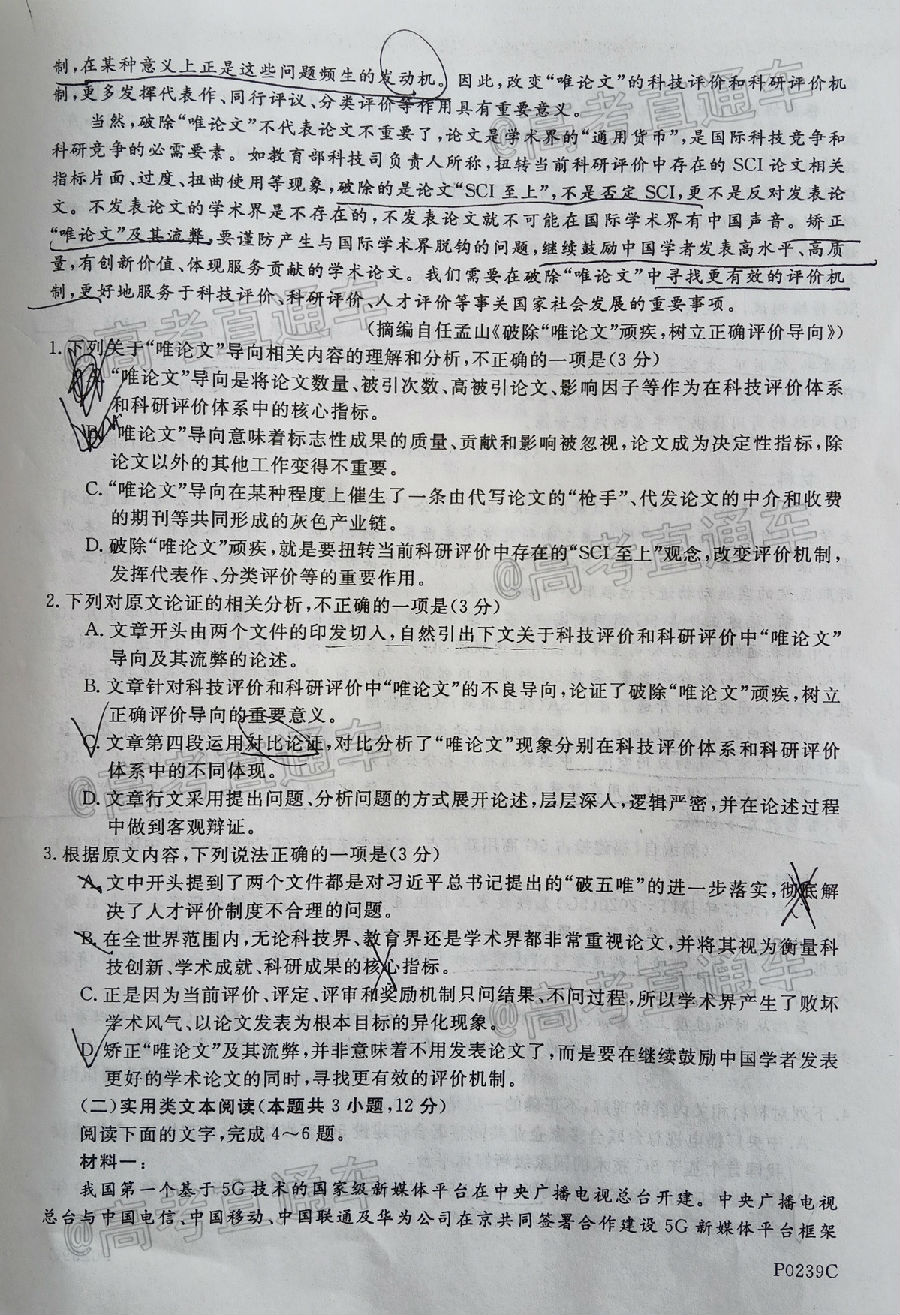 制,在某种意义上正是这些问题频生的发动机。因此,改变“唯论文”的科技评价和科研评价机
制,更多发挥代表作、同行评议、分类评价等作用具有重要意义。
当然,破除“唯论文”不代表论文不重要了,论文是学术界的“通用货币”,是国际科技竞争和
科研竞争的必需要素。如教育部科技司负责人所称,扭转当前科研评价中存在的 SCI 论文相关
指标片面、过度、扭曲使用等现象,破除的是论文“SCI 至上”,不是否定 SCI,更不是反对发表论
文。不发表论文的学术界是不存在的,不发表论文就不可能在国际学术界有中国声音。矫正
“唯论文”及其流弊,要谨防产生与国际学术界脱钩的问题,继续鼓励中国学者发表高水平、高质
量,有创新价值、体现服务贡献的学术论文。我们需要在破除“唯论文”中寻找更有效的评价机
制,更好地服务于科技评价、科研评价、人才评价等事关国家社会发展的重要事项。
(摘编自任孟山《破除“唯论文”顽疾,树立正确评价导向》)
1.下列关于“唯论文”导向相关内容的理解和分析,不正确的一项是(3 分)
“唯论文”导向是将论文数量、被引次数、高被引论文、影响因子等作为在科技评价体系
和科研评价体系中的核心指标。
“唯论文”导向意味着标志性成果的质量、贡献和影响被忽视,论文成为决定性指标,除
论文以外的其他工作变得不重要。
C.“唯论文”导向在某种程度上催生了一条由代写论文的“枪手”、代发论文的中介和收费
的期刊等共同形成的灰色产业链。
D.破除“唯论文”顽疾,就是要扭转当前科研评价中存在的“SCI 至上”观念,改变评价机制,
发挥代表作、分类评价等的重要作用。
2.下列对原文论证的相关分析,不正确的一项是(3 分)
A.文章开头由两个文件的印发切人,自然引出下文关于科技评价和科研评价中“唯论文”
导向及其流弊的论述。
B.文章针对科技评价和科研评价中“唯论文”的不良导向,论证了破除“唯论文”顽疾,树立
正确评价导向的重要意义。
C.文章第四段运用对比论证,对比分析了“唯论文”现象分别在科技评价体系和科研评价
体系中的不同体现。
D.文章行文采用提出问题、分析问题的方式展开论述,层层深人,逻辑严密,并在论述过程
中做到客观辩证。
3.根据原文内容,下列说法正确的一项是(3 分)
A.文中开头提到了两个文件都是对习近平总书记提出的“破五唯”的进一步落实,彻底解
决了人才评价制度不合理的问题。
B.在全世界范围内,无论科技界、教育界还是学术界都非常重视论文,并将其视为衡量科
技创新、学术成就、科研成果的核心指标。
C.正是因为当前评价、评定、评审和奖励机制只问结果、不问过程,所以学术界产生了败坏
学术风气、以论文发表为根本目标的异化现象。
D.矫正“唯论文”及其流弊,并非意味着不用发表论文了,而是要在继续鼓励中国学者发表
更好的学术论文的同时,寻找更有效的评价机制。
(二)实用类文本阅读(本题共 3 小题,12 分)
阅读下面的文字,完成 4~6 题。
材料一:
我国第一个基于 5G 技术的国家级新媒体平台在中央广播电视总台开建。中央广播电视
总台与中国电信、中国移动、中国联通及华为公司在京共同签署合作建设 5G 新媒体平台框架
P0239C
@高考直通车
@高考直通车
@高考直通车
@高考直通车
@高考直通车
@高考直通车